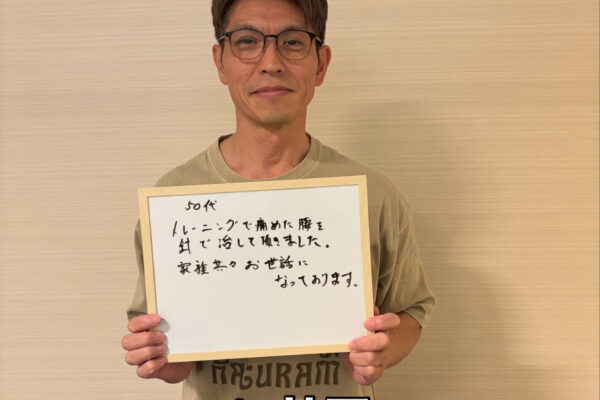 50代
トレーニングで痛めた腰を
針で治して頂きました。
家族共々お世話に
なっております。
NATURAM